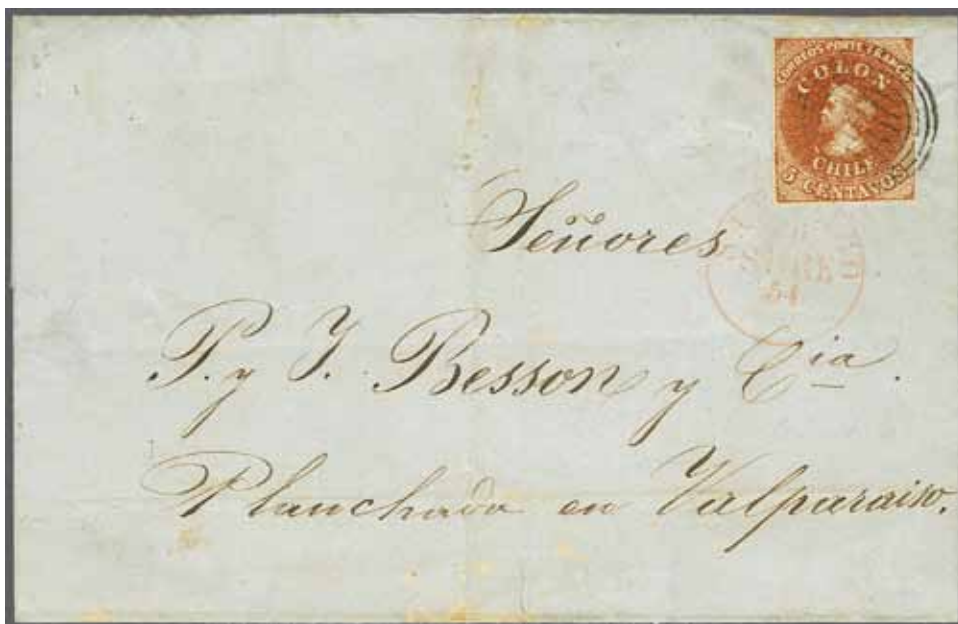 CORREOS PORTE FRANCO
COLON
CHILE
5 CENTAVOS
54
Señores
P. y J. Besson y Cia.
Planchada en Valparaiso.